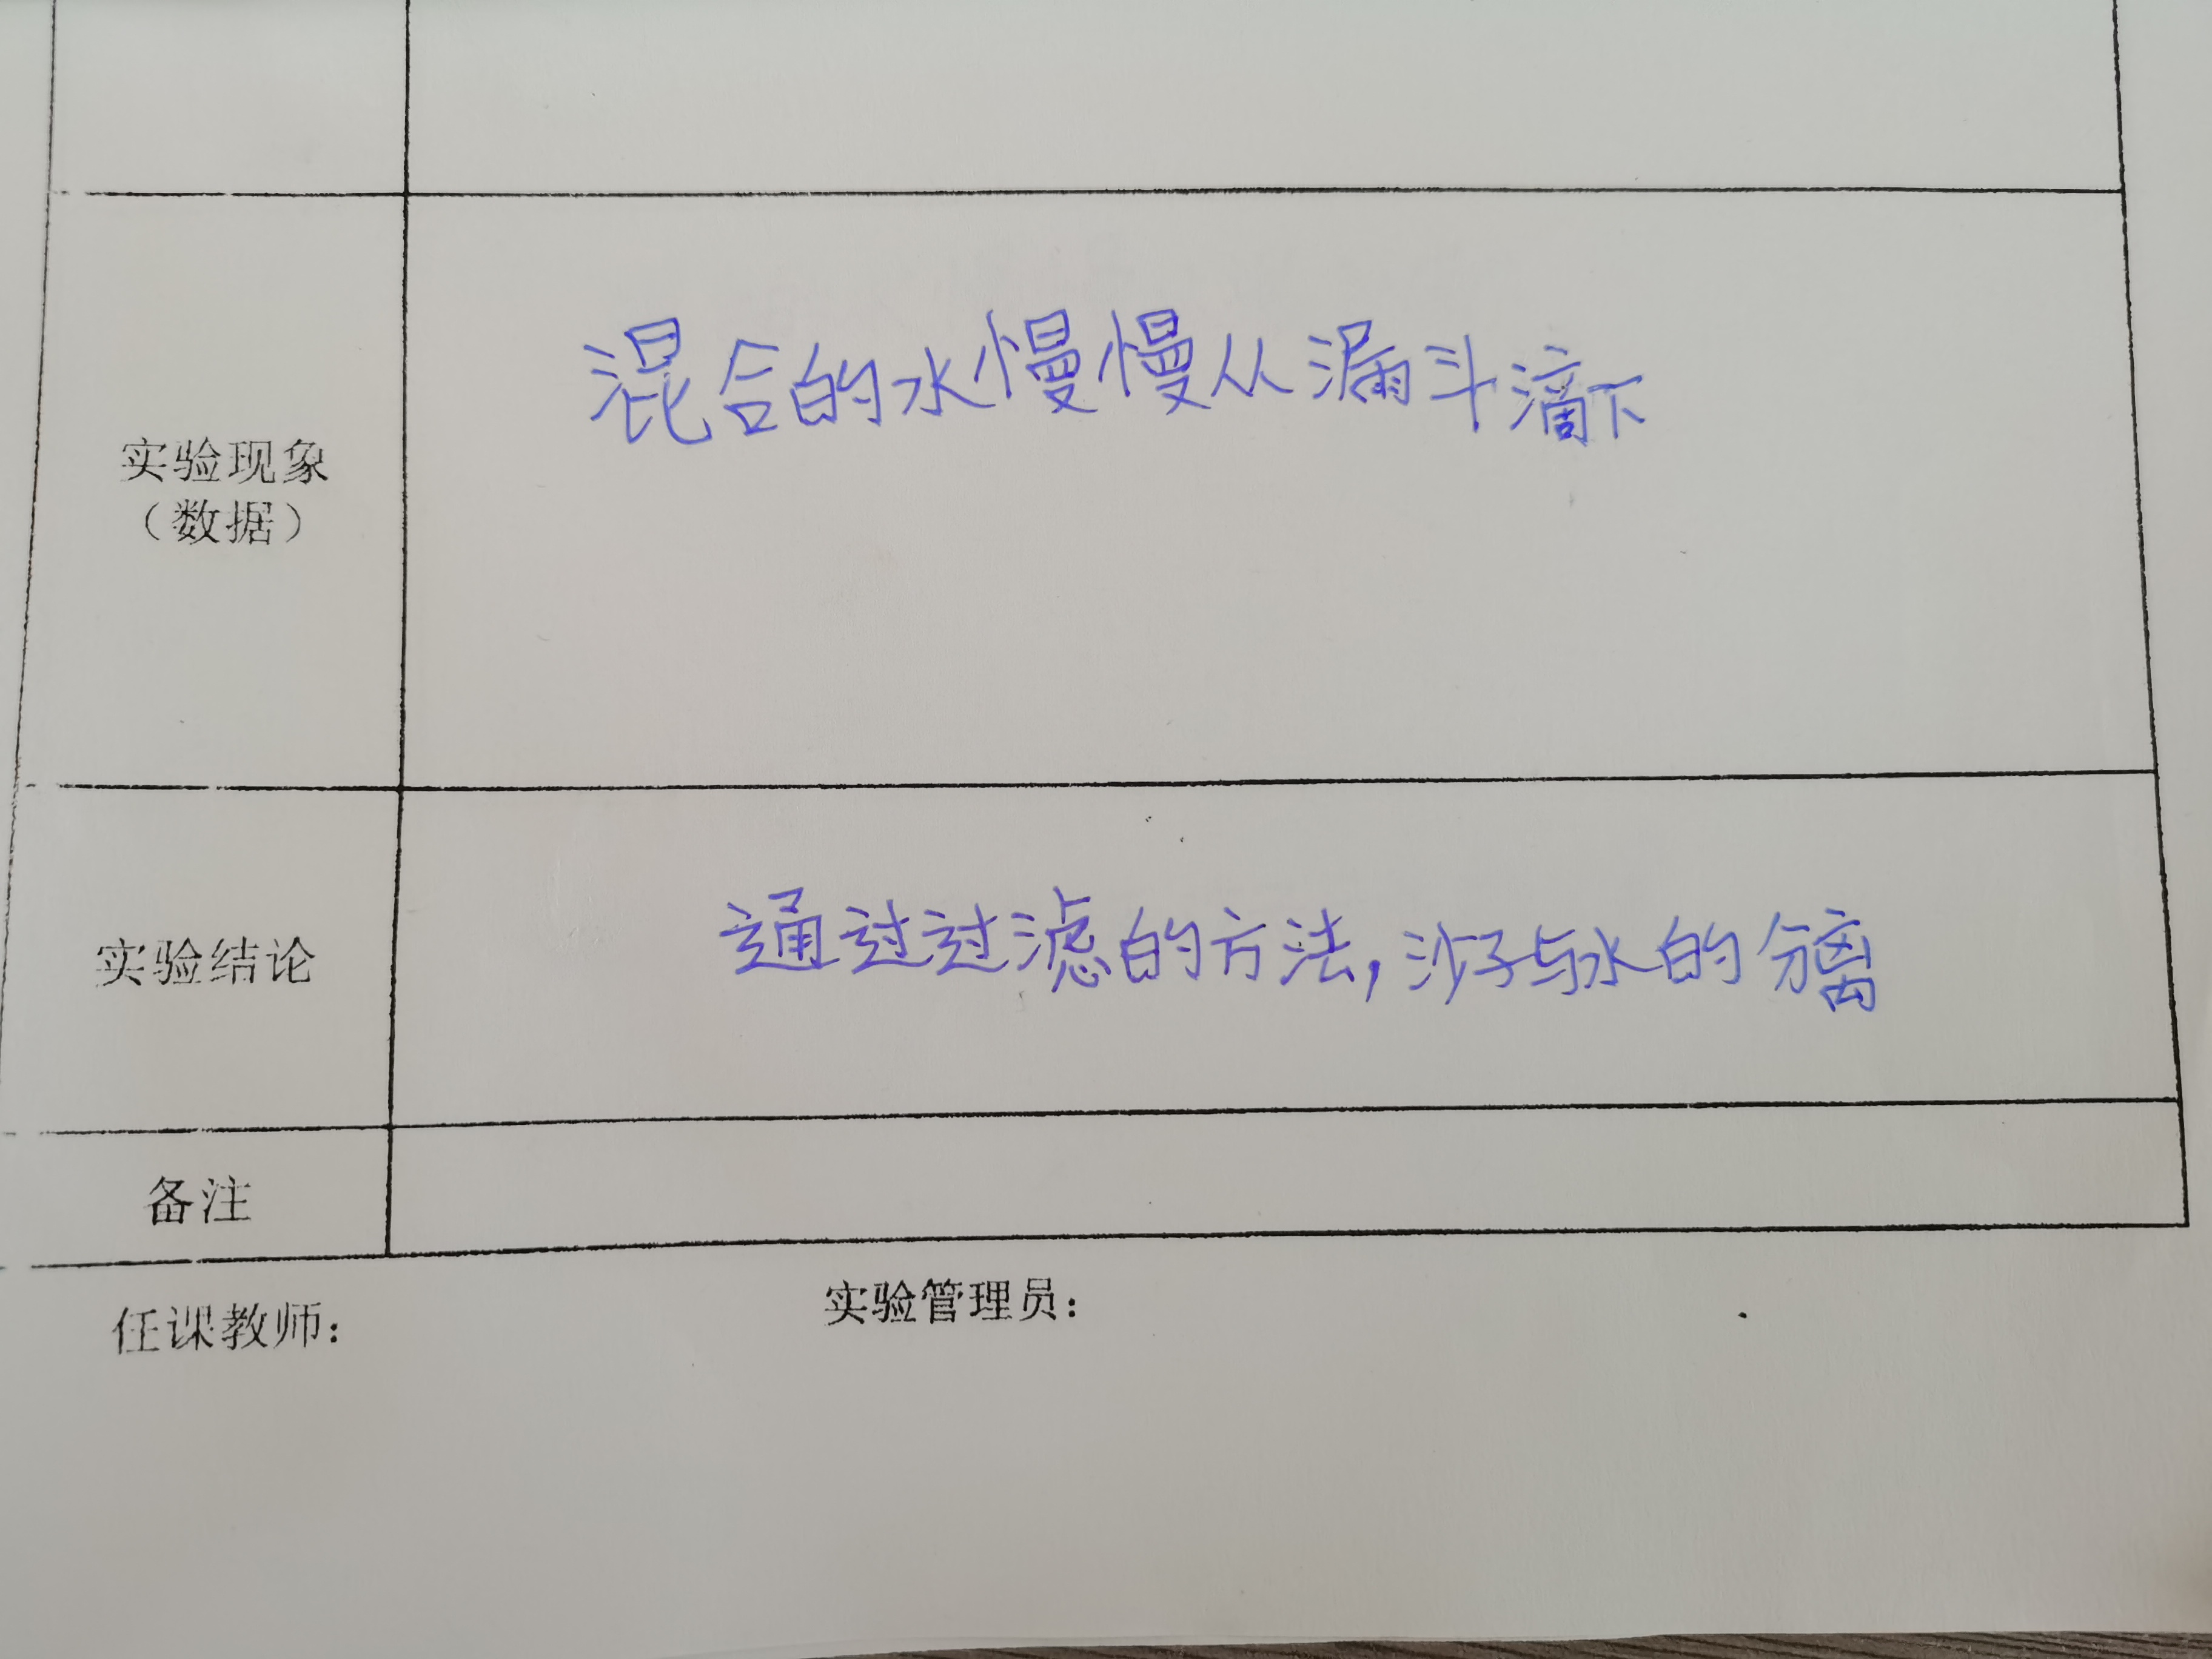 混合的水慢慢从漏斗滴下
实验现象
（数据）
实验结论
通过过滤的方法，沙子与水的分离
备注
任课教师：
实验管理员：